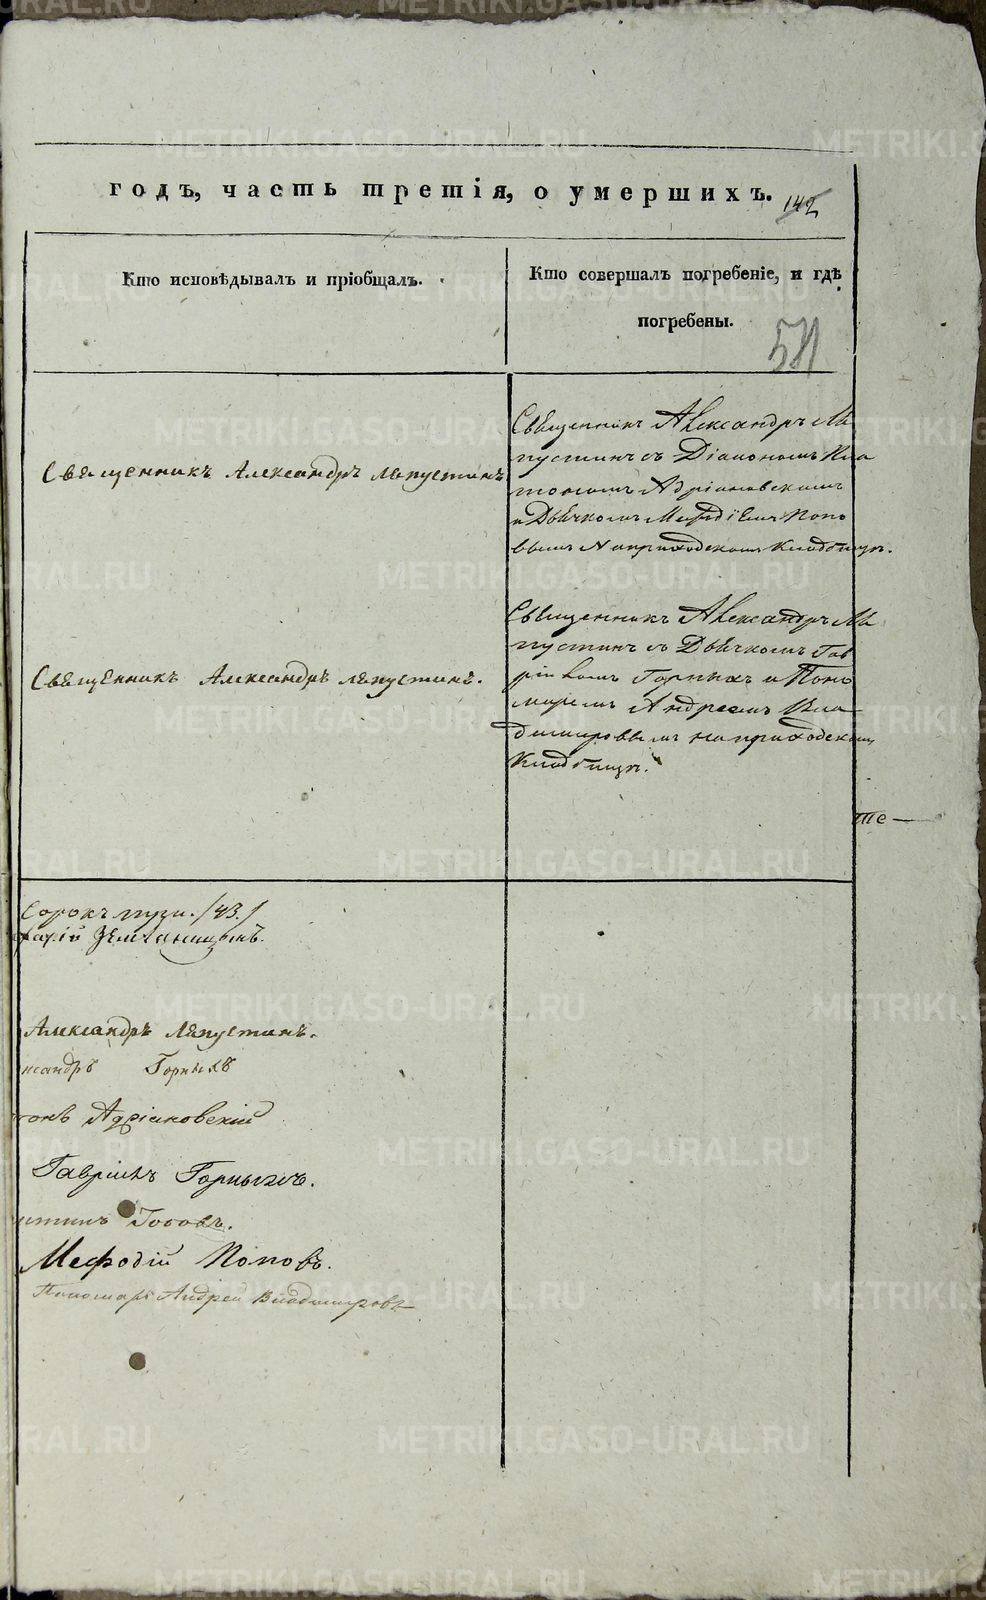 годъ, часть третія, о умершихъ.
142
Кто исповѣдывалъ и пріобщалъ.
Кто совершалъ погребеніе, и гдѣ
погребены.
571
Священникъ Александръ Ляпустинъ
Священникъ Александръ Ля
пустинъ съ Діакономъ Пла
тономъ Адріановскимъ
и Дьячкомъ Мефодіемъ Попо
вымъ На приходскомъ кладбищѣ.
Священникъ Александръ Ляпустинъ.
Священникъ Александръ Ля
пустинъ съ Дьячкомъ Гав
ріиломъ Горныхъ и Поно
маремъ Андреемъ Вла
димировымъ на приходскомъ
Кладбищѣ.
те
Сорокъ три. /43./
Земляницынъ.
Александръ Ляпустинъ.
ксандръ Горныхъ
тонъ Адріановскій
Гавріилъ Горныхъ.
Мефодій Поповъ.
Пономарь Андрей Владимировъ
METRIKI.GASO-URAL.RU